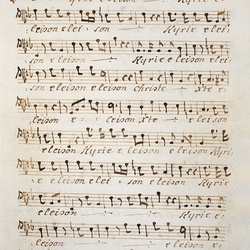 Kyrie e
leison e lei - son Kyrie e lei:
son e leison Kyrie e leison
e leison e leison Christe - Xte e:
leison e: leison Xte - e leison
e leison Kyrie e leison e leison Kyri:
e leison e lei - son e leison Kyrie
e leison - Kyrie e:
leison e leison e leison